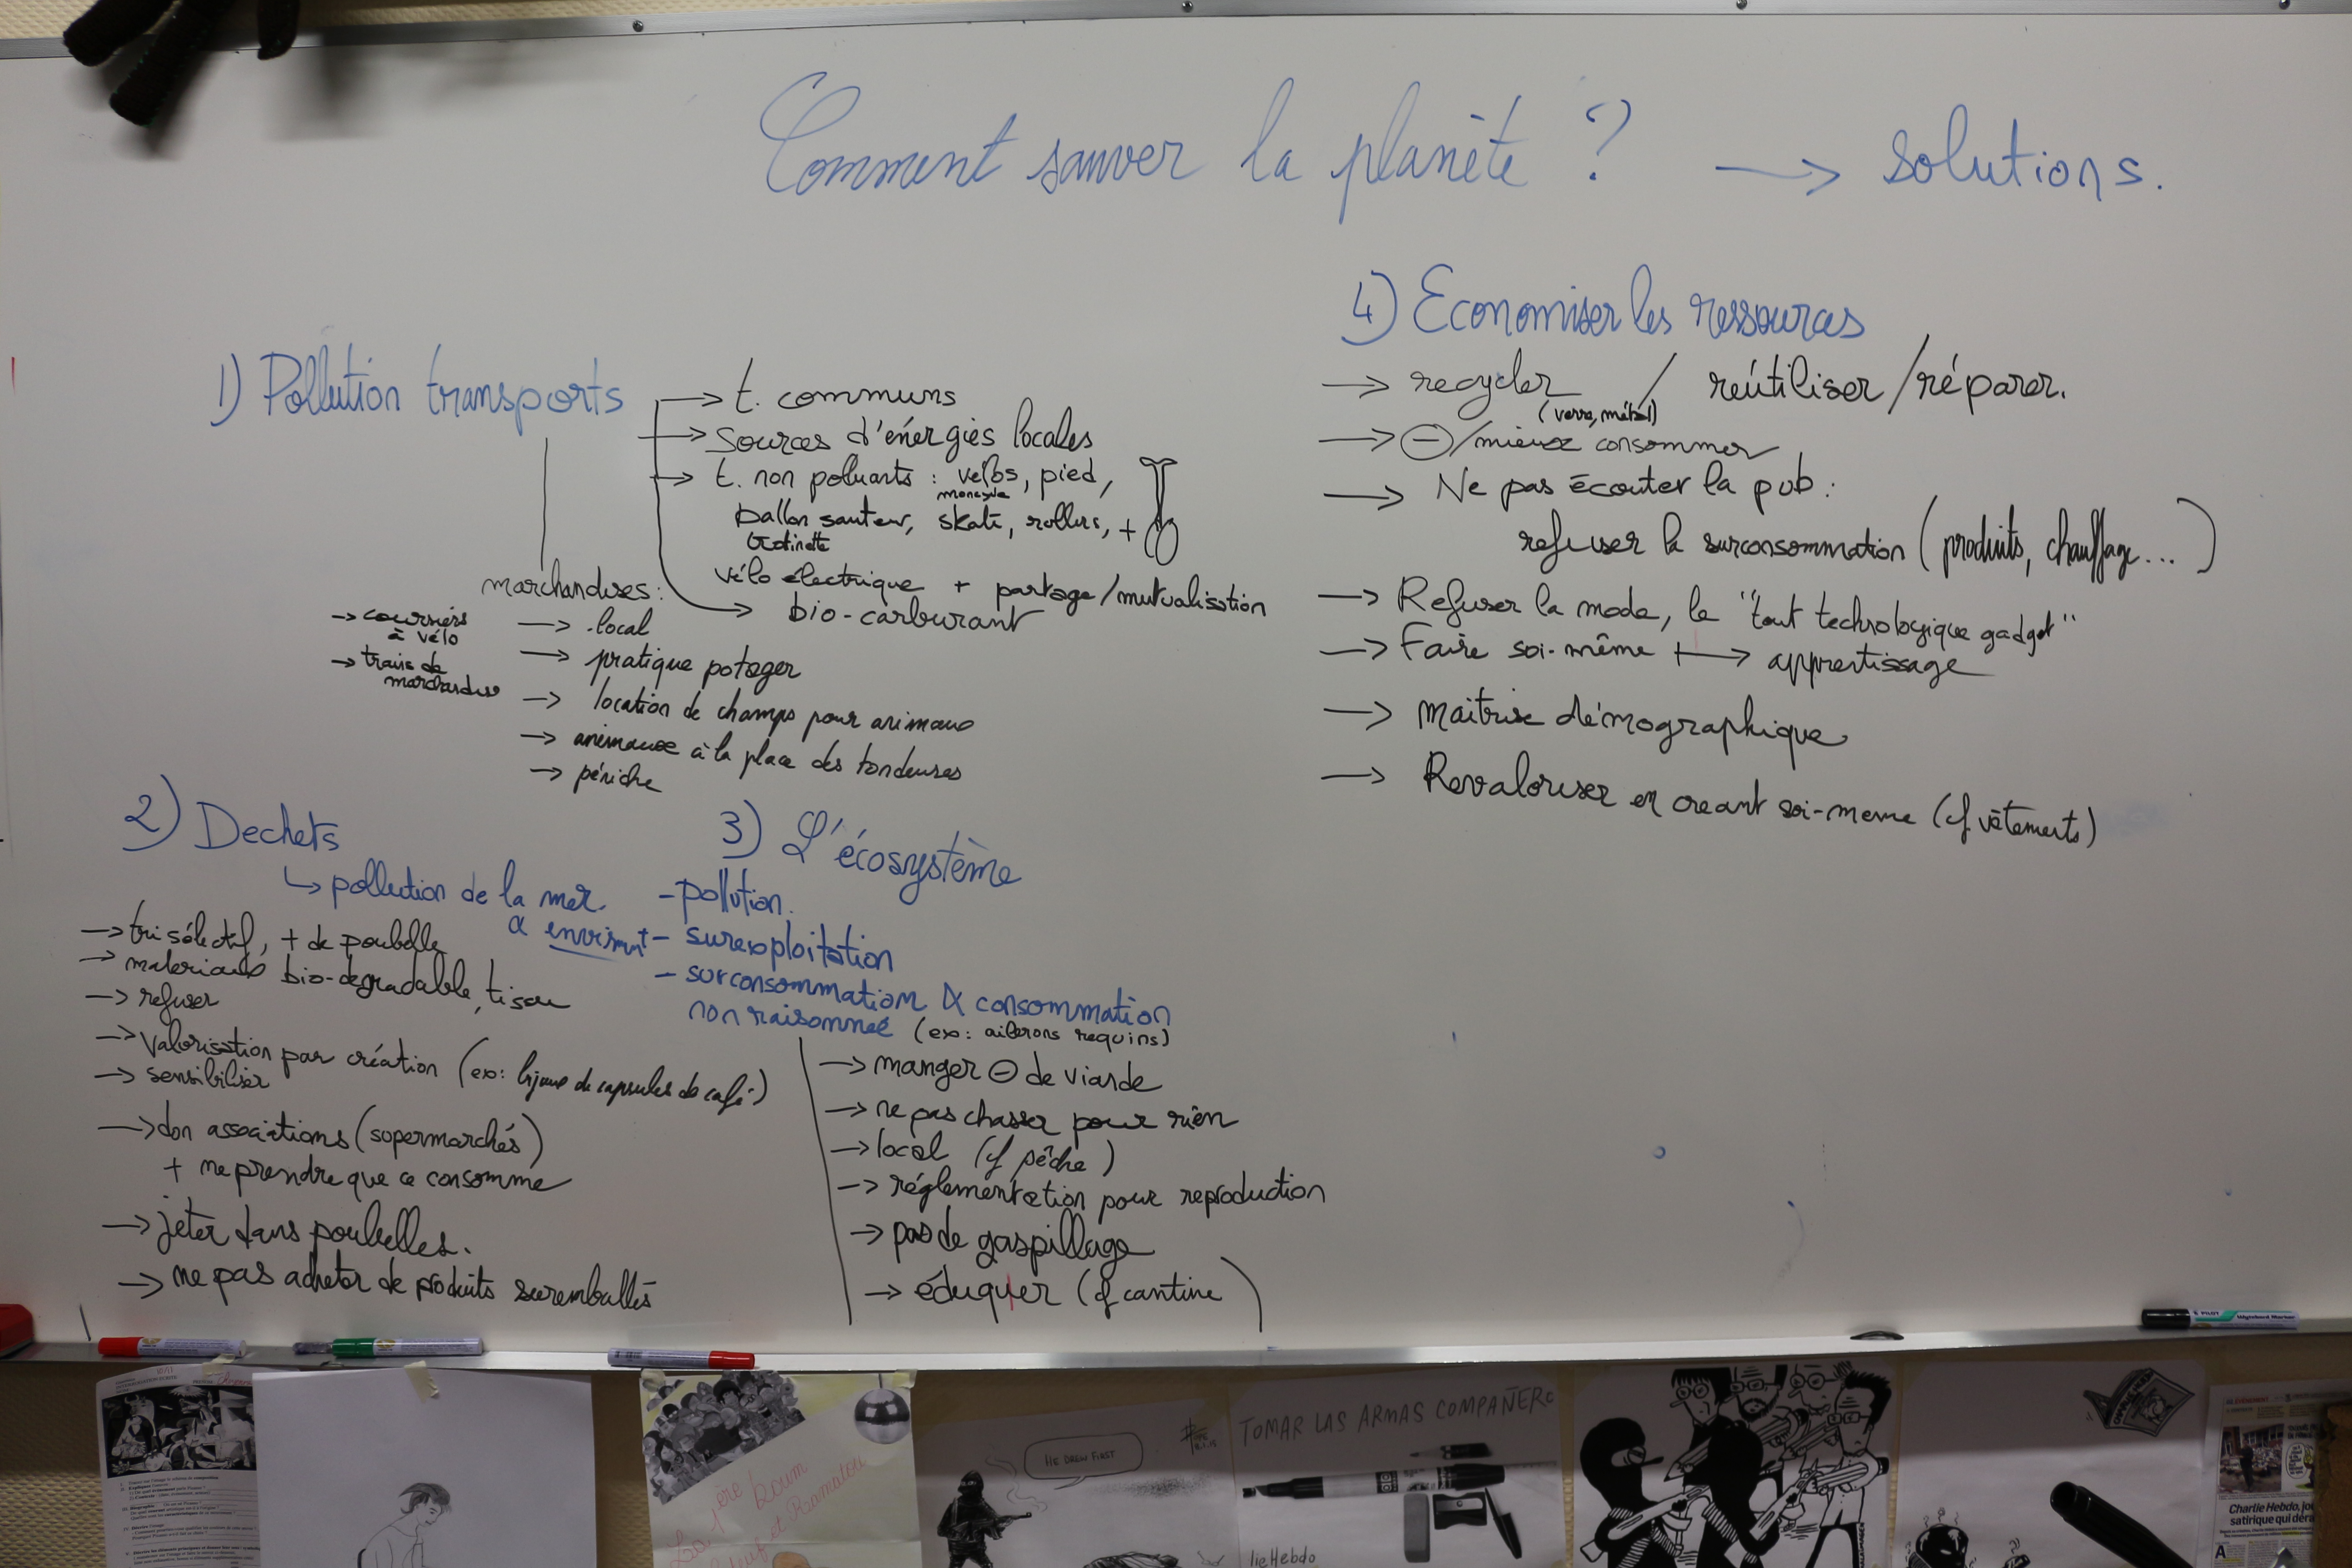 Comment sauver la planète ? → solutions.
1) Pollution transports
→ t. communs
→ sources d'énergies locales
→ t. non poluants : vélos, pied,
monocycle
ballon sauteur, skate, rollers, +
trotinette
vélo électrique + partage/mutualisation
→ bio-carburant
marchandises :
→ coursiers
à vélo
→ trains de
marchandise
→ local
→ pratique potager
→ location de champs pour animaux
→ animaux à la place des tondeuses
→ péniche
2) Dechets
↳ pollution de la mer
& environt
→ tri sélectif, + de poubelle
→ materiaux bio-degradable, tissu
→ refuser
→ valorisation par création (ex: bijoux de capsules de café)
→ sensibiliser
→ don associations (supermarchés)
+ ne prendre que ce consomme
→ jeter dans poubelles.
→ ne pas acheter de produits suremballés
3) L'écosystème
- pollution.
- surexploitation
- surconsommation & consommation
non raisonnée (ex: ailerons requins)
→ manger ⊖ de viande
→ ne pas chasser pour rien
→ local (cf pêche)
→ réglementation pour reproduction
→ pas de gaspillage
→ éduquer (cf cantine)
4) Economiser les ressources
→ recycler / reútiliser / réparer.
(verre, métal)
→ ⊖/mieux consommer
→ Ne pas écouter la pub :
refuser la surconsommation (produits, chauffage...)
→ Refuser la mode, le "tout technologique gadget"
→ Faire soi-même → apprentissage
→ maitrise démographique
→ Revaloriser en creant soi-meme (cf vêtements)
PILOT Wyteboard Marker
HE DREW FIRST
TOMAR LAS ARMAS COMPAÑERO
lieHebdo
Charlie Hebdo, jou
satirique qui déra